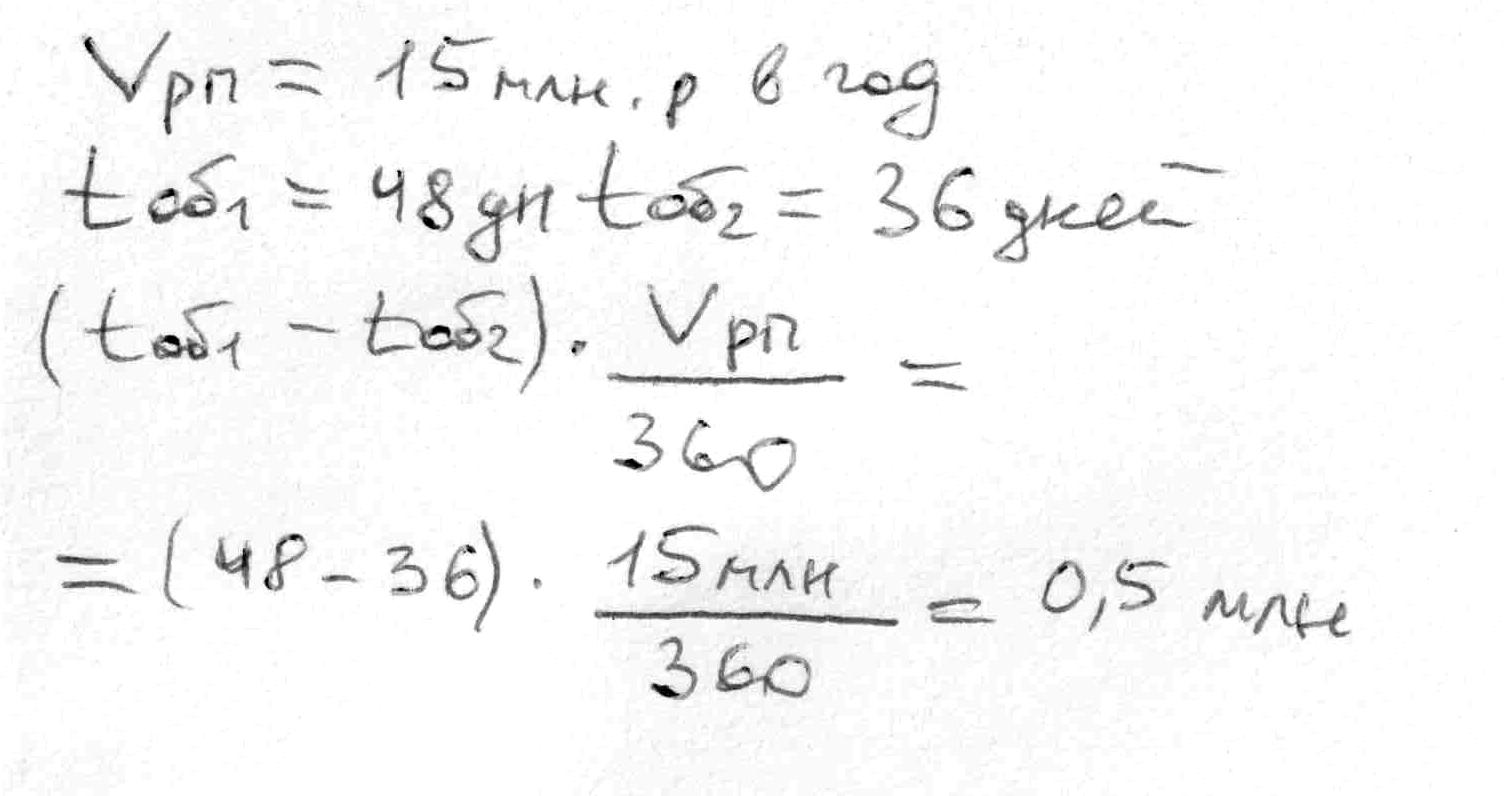 Vрп = 15 млн. р в год
tоб1 = 48 дн tоб2 = 36 дней
(tоб1 - tоб2) · Vрп / 360 =
= (48 - 36) · 15 млн / 360 = 0,5 млн